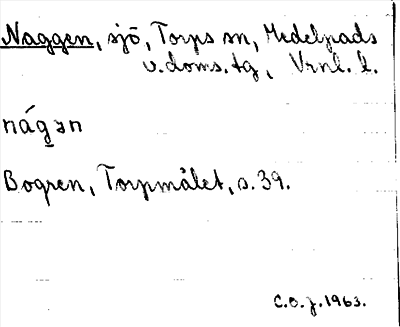 Naggen, sjö, Torps sn, Medelpads
v. doms. tg, Vrnl. l.
nág̱ən
Bogren, Torpmålet, s. 39.
C.O.J. 1963.